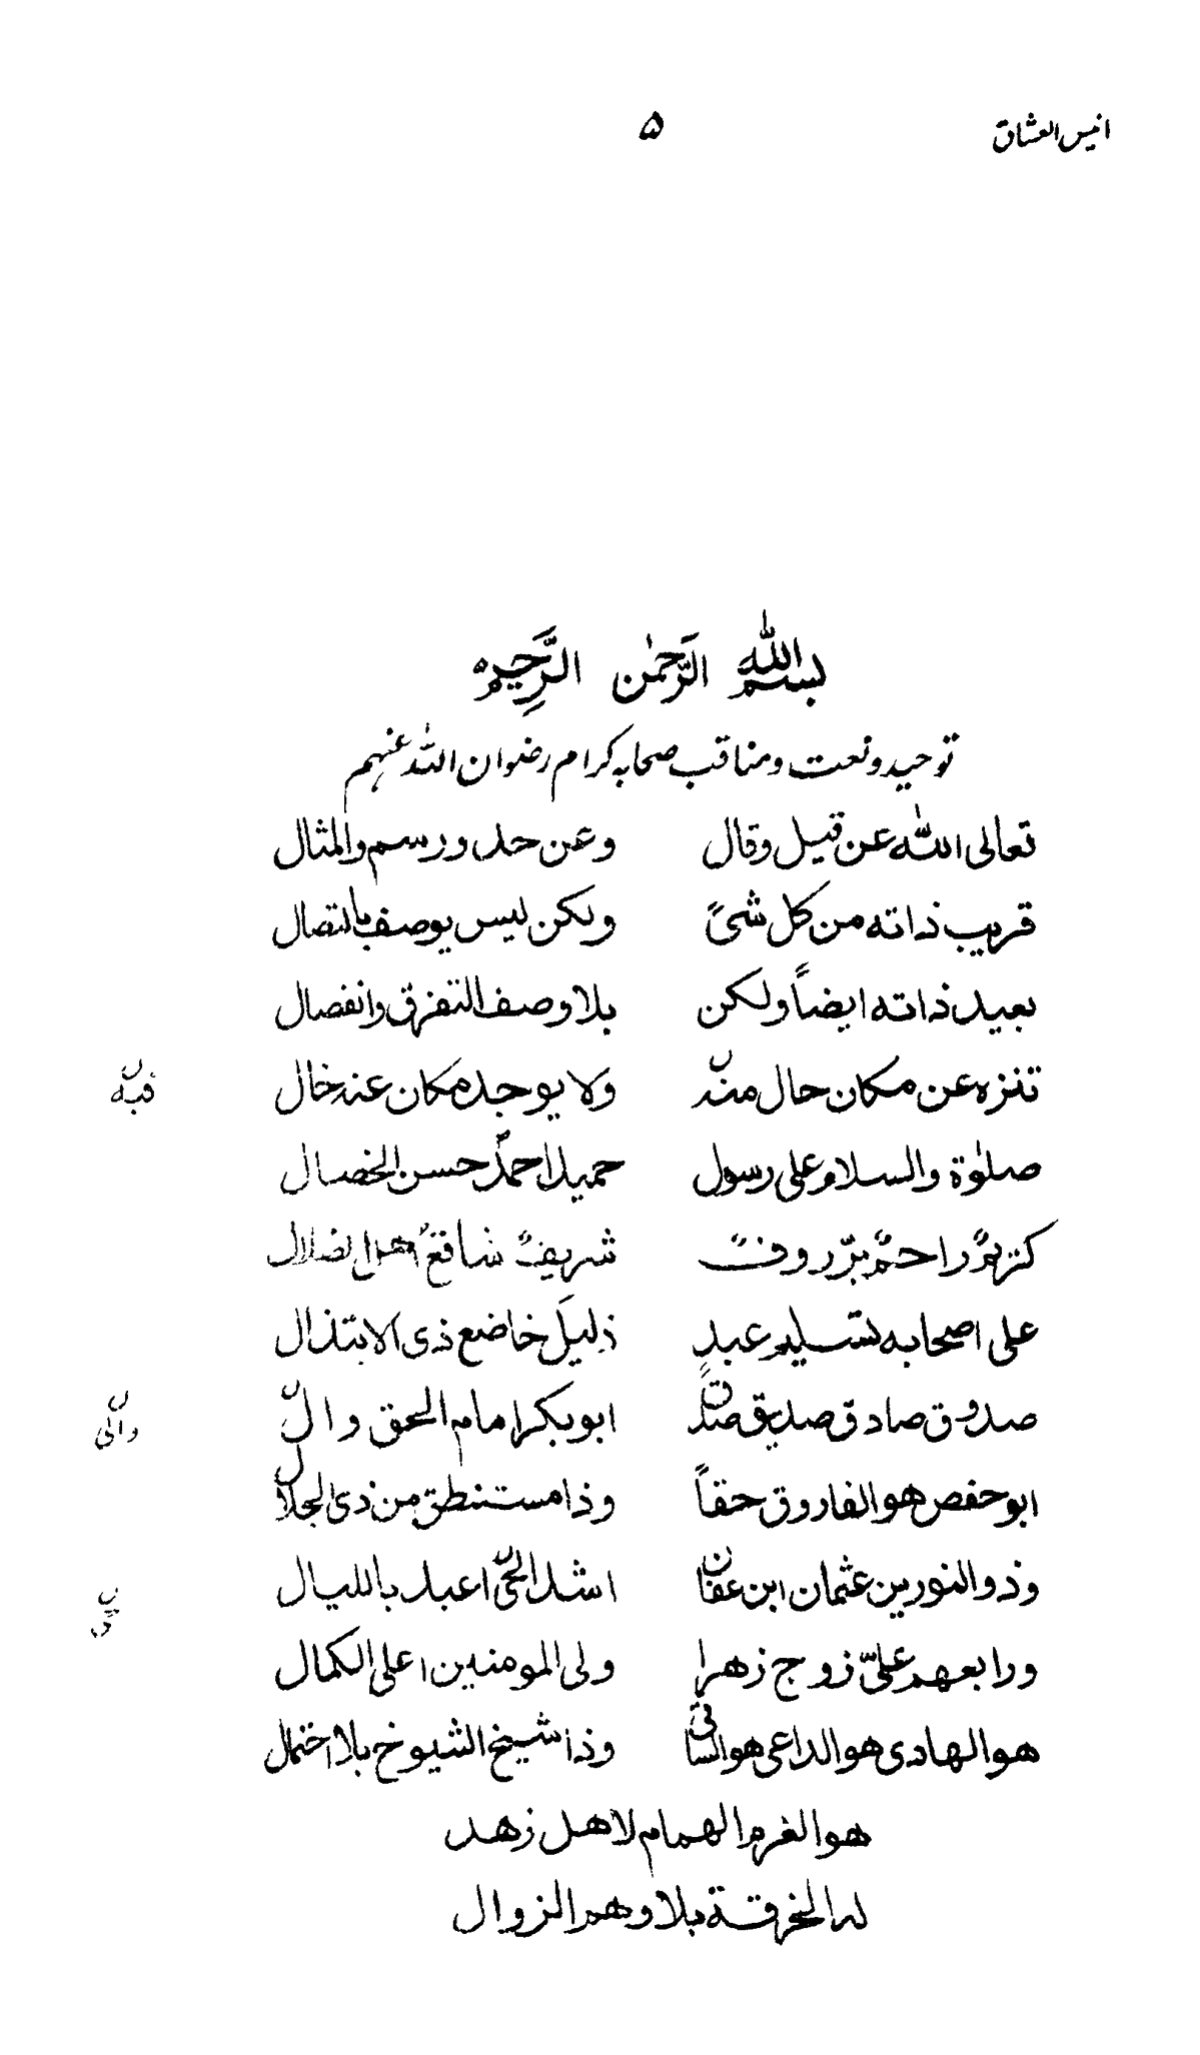 انیس العشاق ۵
بِسْمِ اللّٰهِ الرَّحْمٰنِ الرَّحِيْمِ
توحید و نعت و مناقب صحابہ کرام رضوان اللہ عنہم
تعالى اللّٰه عن قيل وقال وعن حد ورسم والمثال
قريب ذاته من كل شئً ولكن ليس يوصف باتصال
بعيد ذاته ايضاً ولكن بلا وصف التفرق وانفصال
تنزه عن مكان حال منه ن ولا يوجد مكان عنه خال
فيه ن
صلوٰة والسلام على رسول حميد احمدٌ حسن الخصال
كريمٌ راحمٌ برّ روفٌ شريفٌ شافعٌ اهل الضلال
على اصحابه تسليم عبدٍ ذليل خاضع ذى الابتذال
صدوق صادق صديق صدق ابوبكر امام الحق وال ن
والى ن
ابوحفص هو الفاروق حقاً وذا مستنطق من ذى الجلال
وذو النورين عثمان ابن عفان اشد الحىّ ن اعبد بالليال
ورابعهم علىّ زوج زهرا ولى المومنين اعلى الكمال
هو الهادى هو الداعى هو الساقى وذا شيخ الشيوخ بلا احتمال
هو القرم الهمام لاهل زهد
له الخرقة بلا وهم الزوال